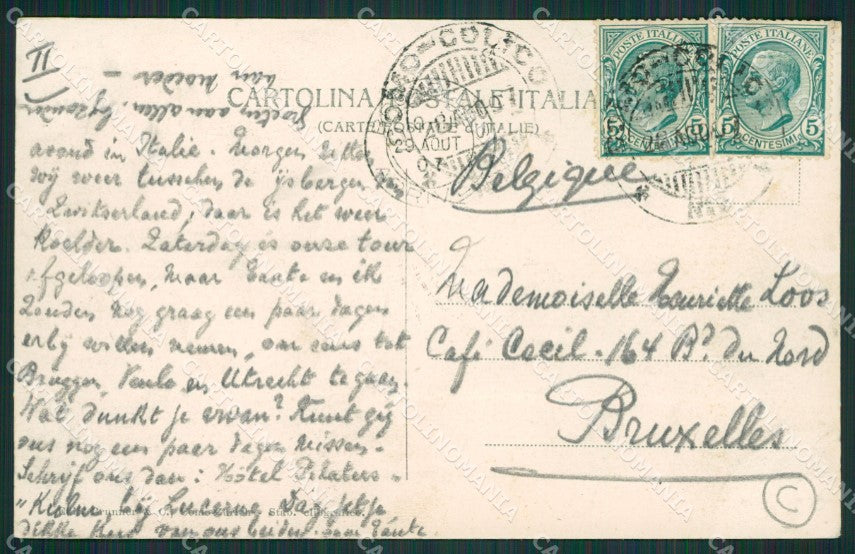 II
CARTOLINA POSTALE ITALIANA
(CARTE POSTALE D'ITALIE)
POSTE ITALIANE
CENTESIMI 5
POSTE ITALIANE
CENTESIMI 5
COLICO
29 AOUT
07
Belgique
Mademoiselle Henriette Loos
Café Cecil - 164 Bd du Nord
Bruxelles
avond in Italie. Morgen zitten
wij weer tusschen de ijsbergen van
Zwitserland, daar is het weer
koelder. Zaterdag is onze tour
afgeloopen, maar Tante en ik
zouden nog graag een paar dagen
erbij willen nemen, om eens tot
Brugge, Venlo en Utrecht te gaan.
Wat dunkt je ervan? Kunt gij
ons nog een paar dagen missen.
Schrijf ons dan: Hôtel Pilatus-
Kulm bij Lucerne. Dag
dikke kus van ons beiden. Tante
groeten aan allen, bijzonder
aan moeder -
C
CARTOLINOMANIA